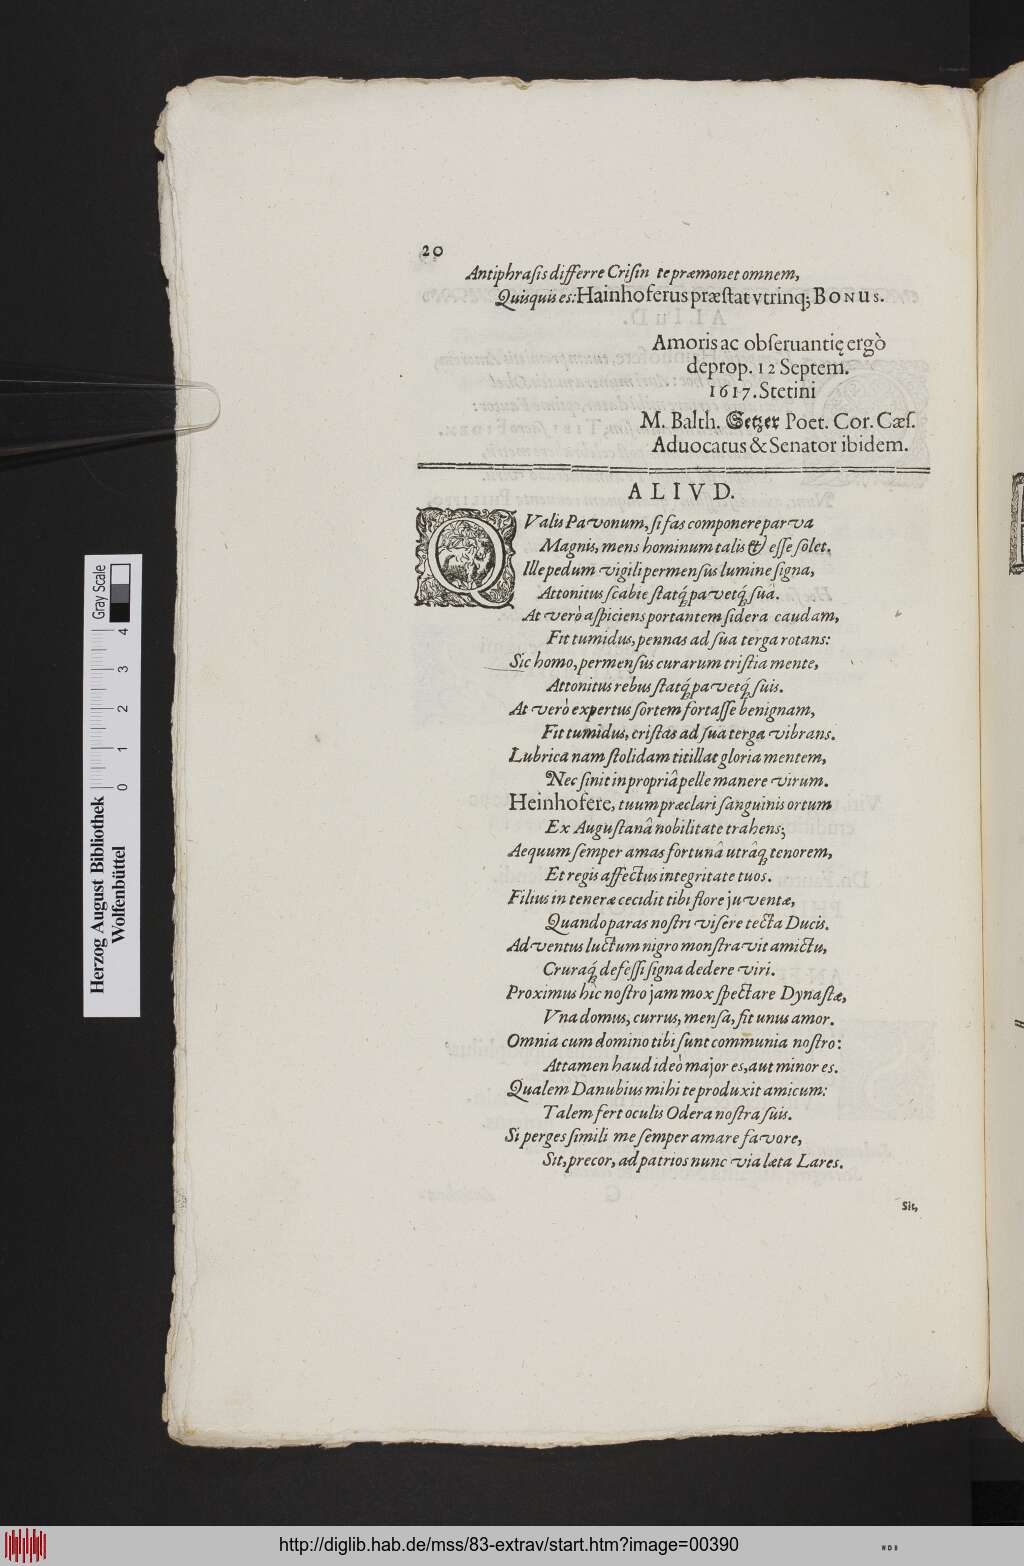 20
Antiphrasis differre Crisin te præmonet omnem,
Quisquis es: Hainhoferus præstat vtrinq; BONUS.
Amoris ac obseruantię ergò
deprop. 12 Septem.
1617. Stetini
M. Balth. Setzer Poet. Cor. Cæs.
Aduocatus & Senator ibidem.
ALIVD.
QValis Pavonum, si fas componere parva
Magnis, mens hominum talis & esse solet.
Ille pedum vigili permensus lumine signa,
Attonitus scabie statq́; pavetq́; suâ.
At verò aspiciens portantem sidera caudam,
Fit tumidus, pennas ad sua terga rotans:
Sic homo, permensus curarum tristia mente,
Attonitus rebus statq́; pavetq́; suis.
At verò expertus sortem fortasse benignam,
Fit tumidus, cristas ad sua terga vibrans.
Lubrica nam stolidam titillat gloria mentem,
Nec sinit in propriâ pelle manere virum.
Heinhofere, tuum præclari sanguinis ortum
Ex Augustanâ nobilitate trahens;
Aequum semper amas fortunâ utrâq; tenorem,
Et regis affectus integritate tuos.
Filius in teneræ cecidit tibi flore juventæ,
Quando paras nostri visere tecta Ducis.
Adventus luctum nigro monstravit amictu,
Cruraq́; defessi signa dedere viri.
Proximus hîc nostro jam mox spectare Dynastæ,
Vna domus, currus, mensa, fit unus amor.
Omnia cum domino tibi sunt communia nostro:
Attamen haud ideò major es, aut minor es.
Qualem Danubius mihi te produxit amicum:
Talem fert oculis Odera nostra suis.
Si perges simili me semper amare favore,
Sit, precor, ad patrios nunc via læta Lares.
Sit,
Herzog August Bibliothek
Wolfenbüttel
0 1 2 3 4
Gray Scale
http://diglib.hab.de/mss/83-extrav/start.htm?image=00390